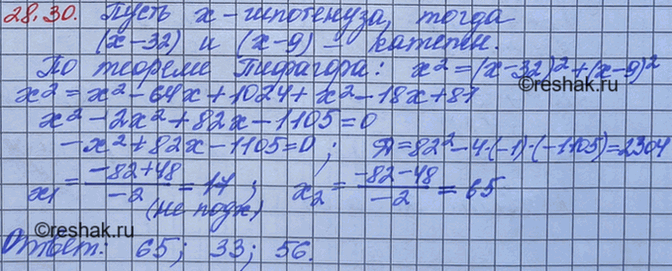 28.30. Пусть x - гипотенуза, тогда
(x-32) и (x-9) - катеты.
По теореме Пифагора: x² = (x-32)² + (x-9)²
x² = x² - 64x + 1024 + x² - 18x + 81
x² - 2x² + 82x - 1105 = 0
-x² + 82x - 1105 = 0; Д = 82² - 4·(-1)·(-1105) = 2304
x₁ = (-82+48)/(-2) = 17; x₂ = (-82-48)/(-2) = 65
(не подх)
Ответ: 65; 33; 56.
©reshak.ru